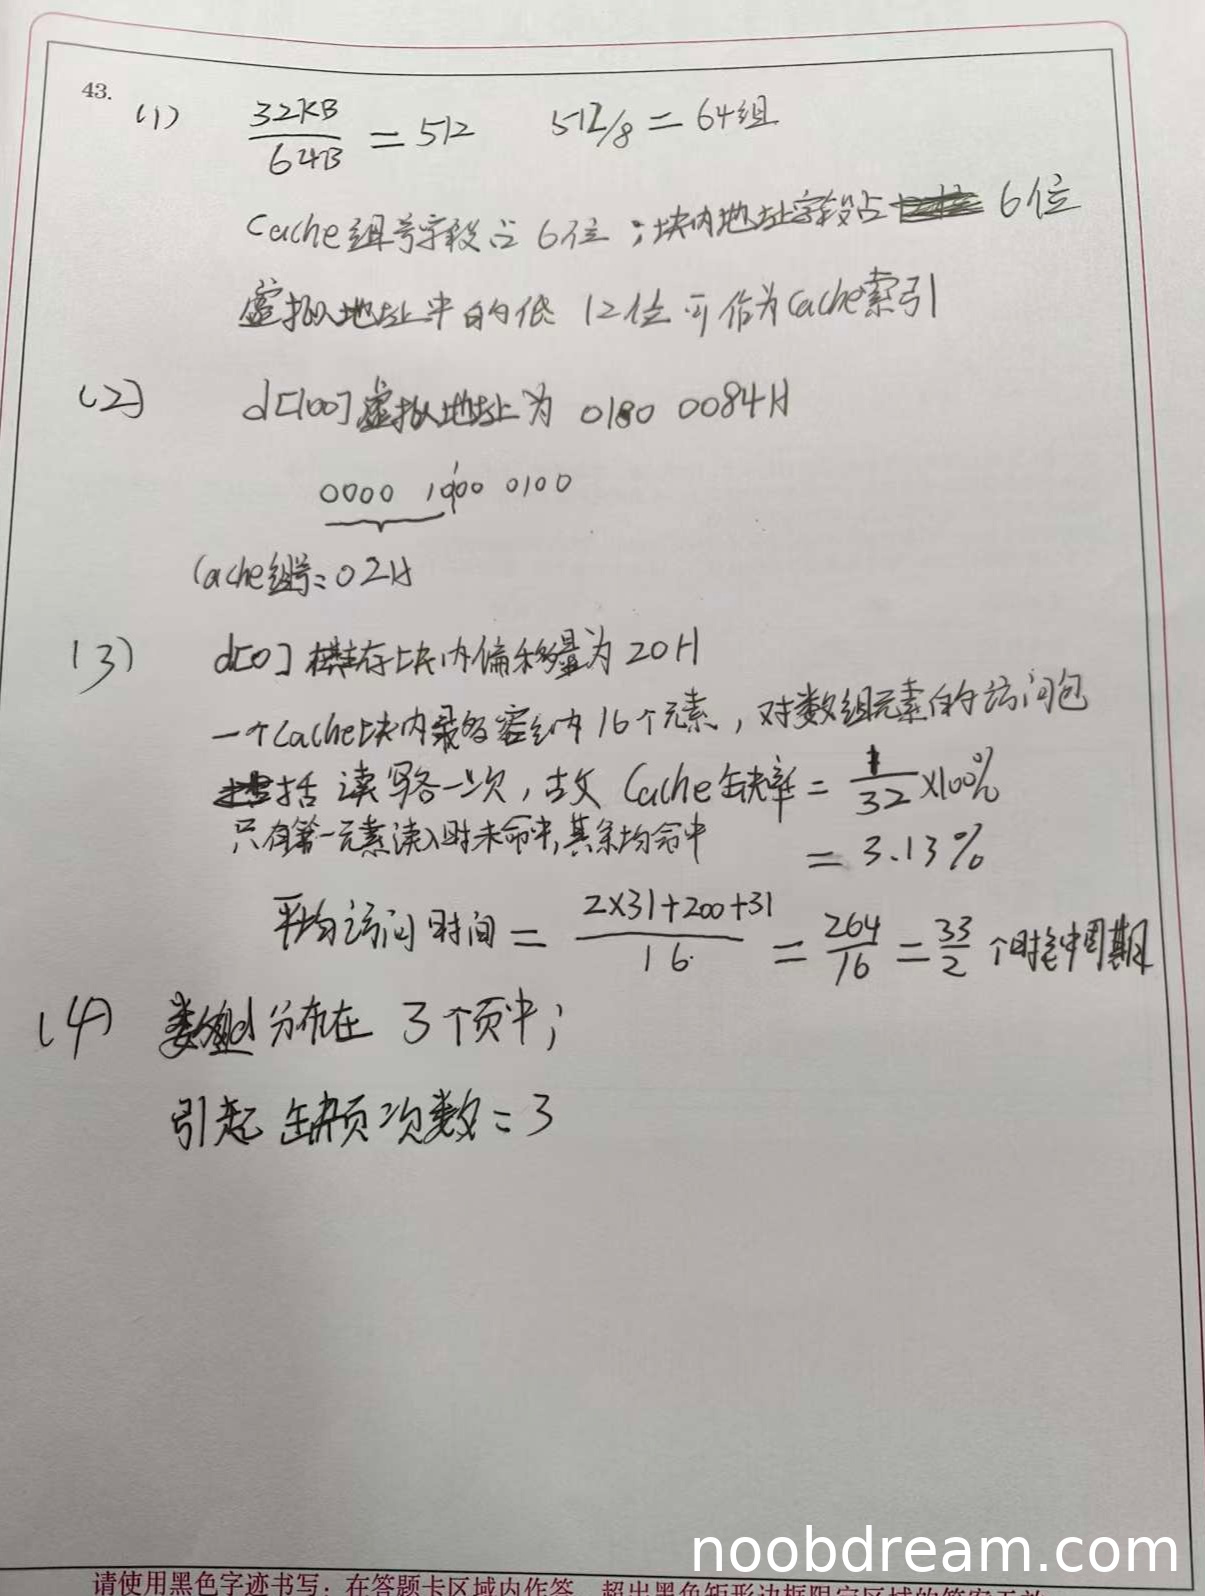 43.
(1) 32KB/64B = 512 512/8 = 64组
Cache组号字段占6位；块内地址字段占 6位
虚拟地址中的低12位可作为Cache索引
(2) d[100]虚拟地址为 0180 0084H
0000 1000 0100
Cache组号=02H
(3) d[0]主存块内偏移量为20H
一个Cache块内最多容纳16个元素，对数组元素的访问包
括读写各一次，故Cache缺失率 = 1/32 ×100%
只有第一元素读入时未命中,其余均命中 = 3.13%
平均访问时间 = 2×31+200+31/16 = 264/16 = 33/2 个时钟周期
(4) 数组d分布在 3个页中；
引起缺页次数=3
noobdream.com
请使用黑色字迹书写：在答题卡区域内作答